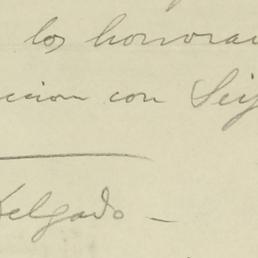 los honorar
ccion con Seij
Delgado –